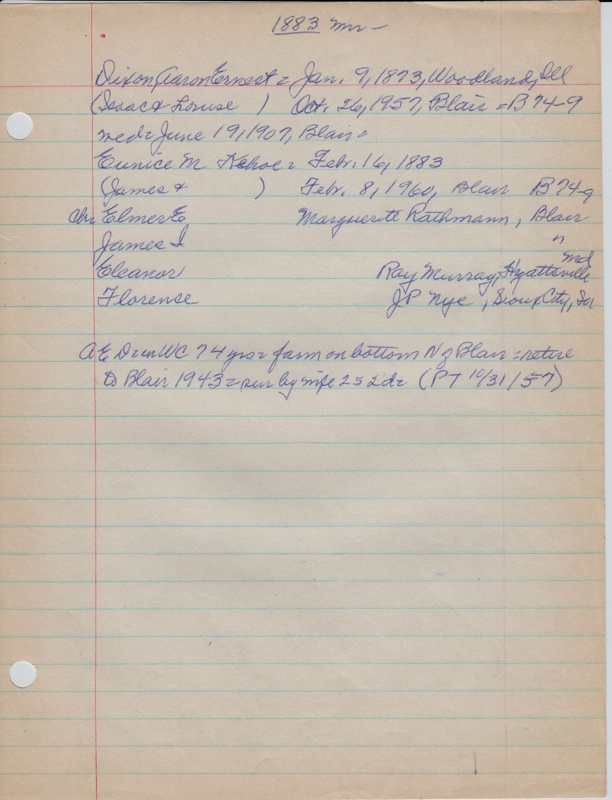 1883 mr -
Dixon, Aaron Ernest = Jan. 9, 1873, Woodland, Ill
(Isaac & Louise ) Oct. 26, 1957, Blair = B 74-9
med = June 19, 1907, Blair =
Eunice M. Kehoe = Feb. 16, 1883
(James & ) Feb. 8, 1960, Blair B 74-9
chr Elmer E Marguerite Rathmann, Blair
James I "
Eleanor Ray Murray, Hyattsville Md
Florence J.P. Nye, Sioux City, Ia
A E D in WC 74 yrs = farm on bottom N of Blair = retire
to Blair 1943 = sur by wife 2s 2d = (PT 10/31/57)